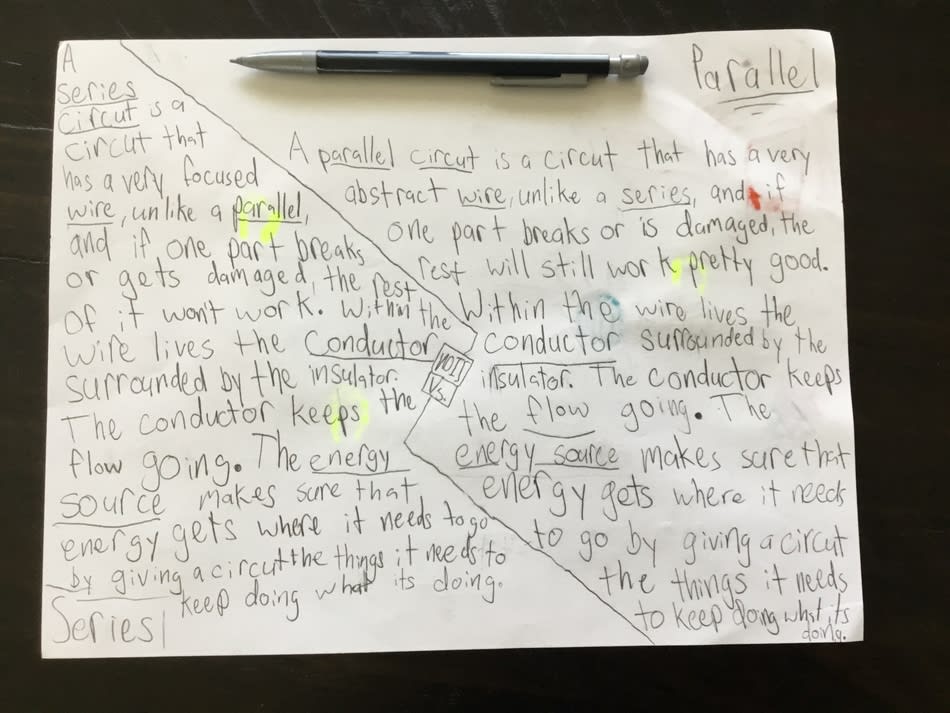 A
series
circut is a
circut that
has a very focused
wire, unlike a parallel,
and if one part breaks
or gets damaged, the rest
of it won't work. Within the
wire lives the Conductor
surrounded by the insulator.
The conductor keeps the
flow going. The energy
source makes sure that
energy gets where it needs to go
by giving a circut the things it needs to
keep doing what its doing.
Series
NOT
Vs.
Parallel
A parallel circut is a circut that has a very
abstract wire, unlike a series, and if
one part breaks or is damaged, the
rest will still work pretty good.
Within the wire lives the
conductor surrounded by the
insulator. The conductor keeps
the flow going. The
energy source makes sure that
energy gets where it needs
to go by giving a circut
the things it needs
to keep doing what its
doing.